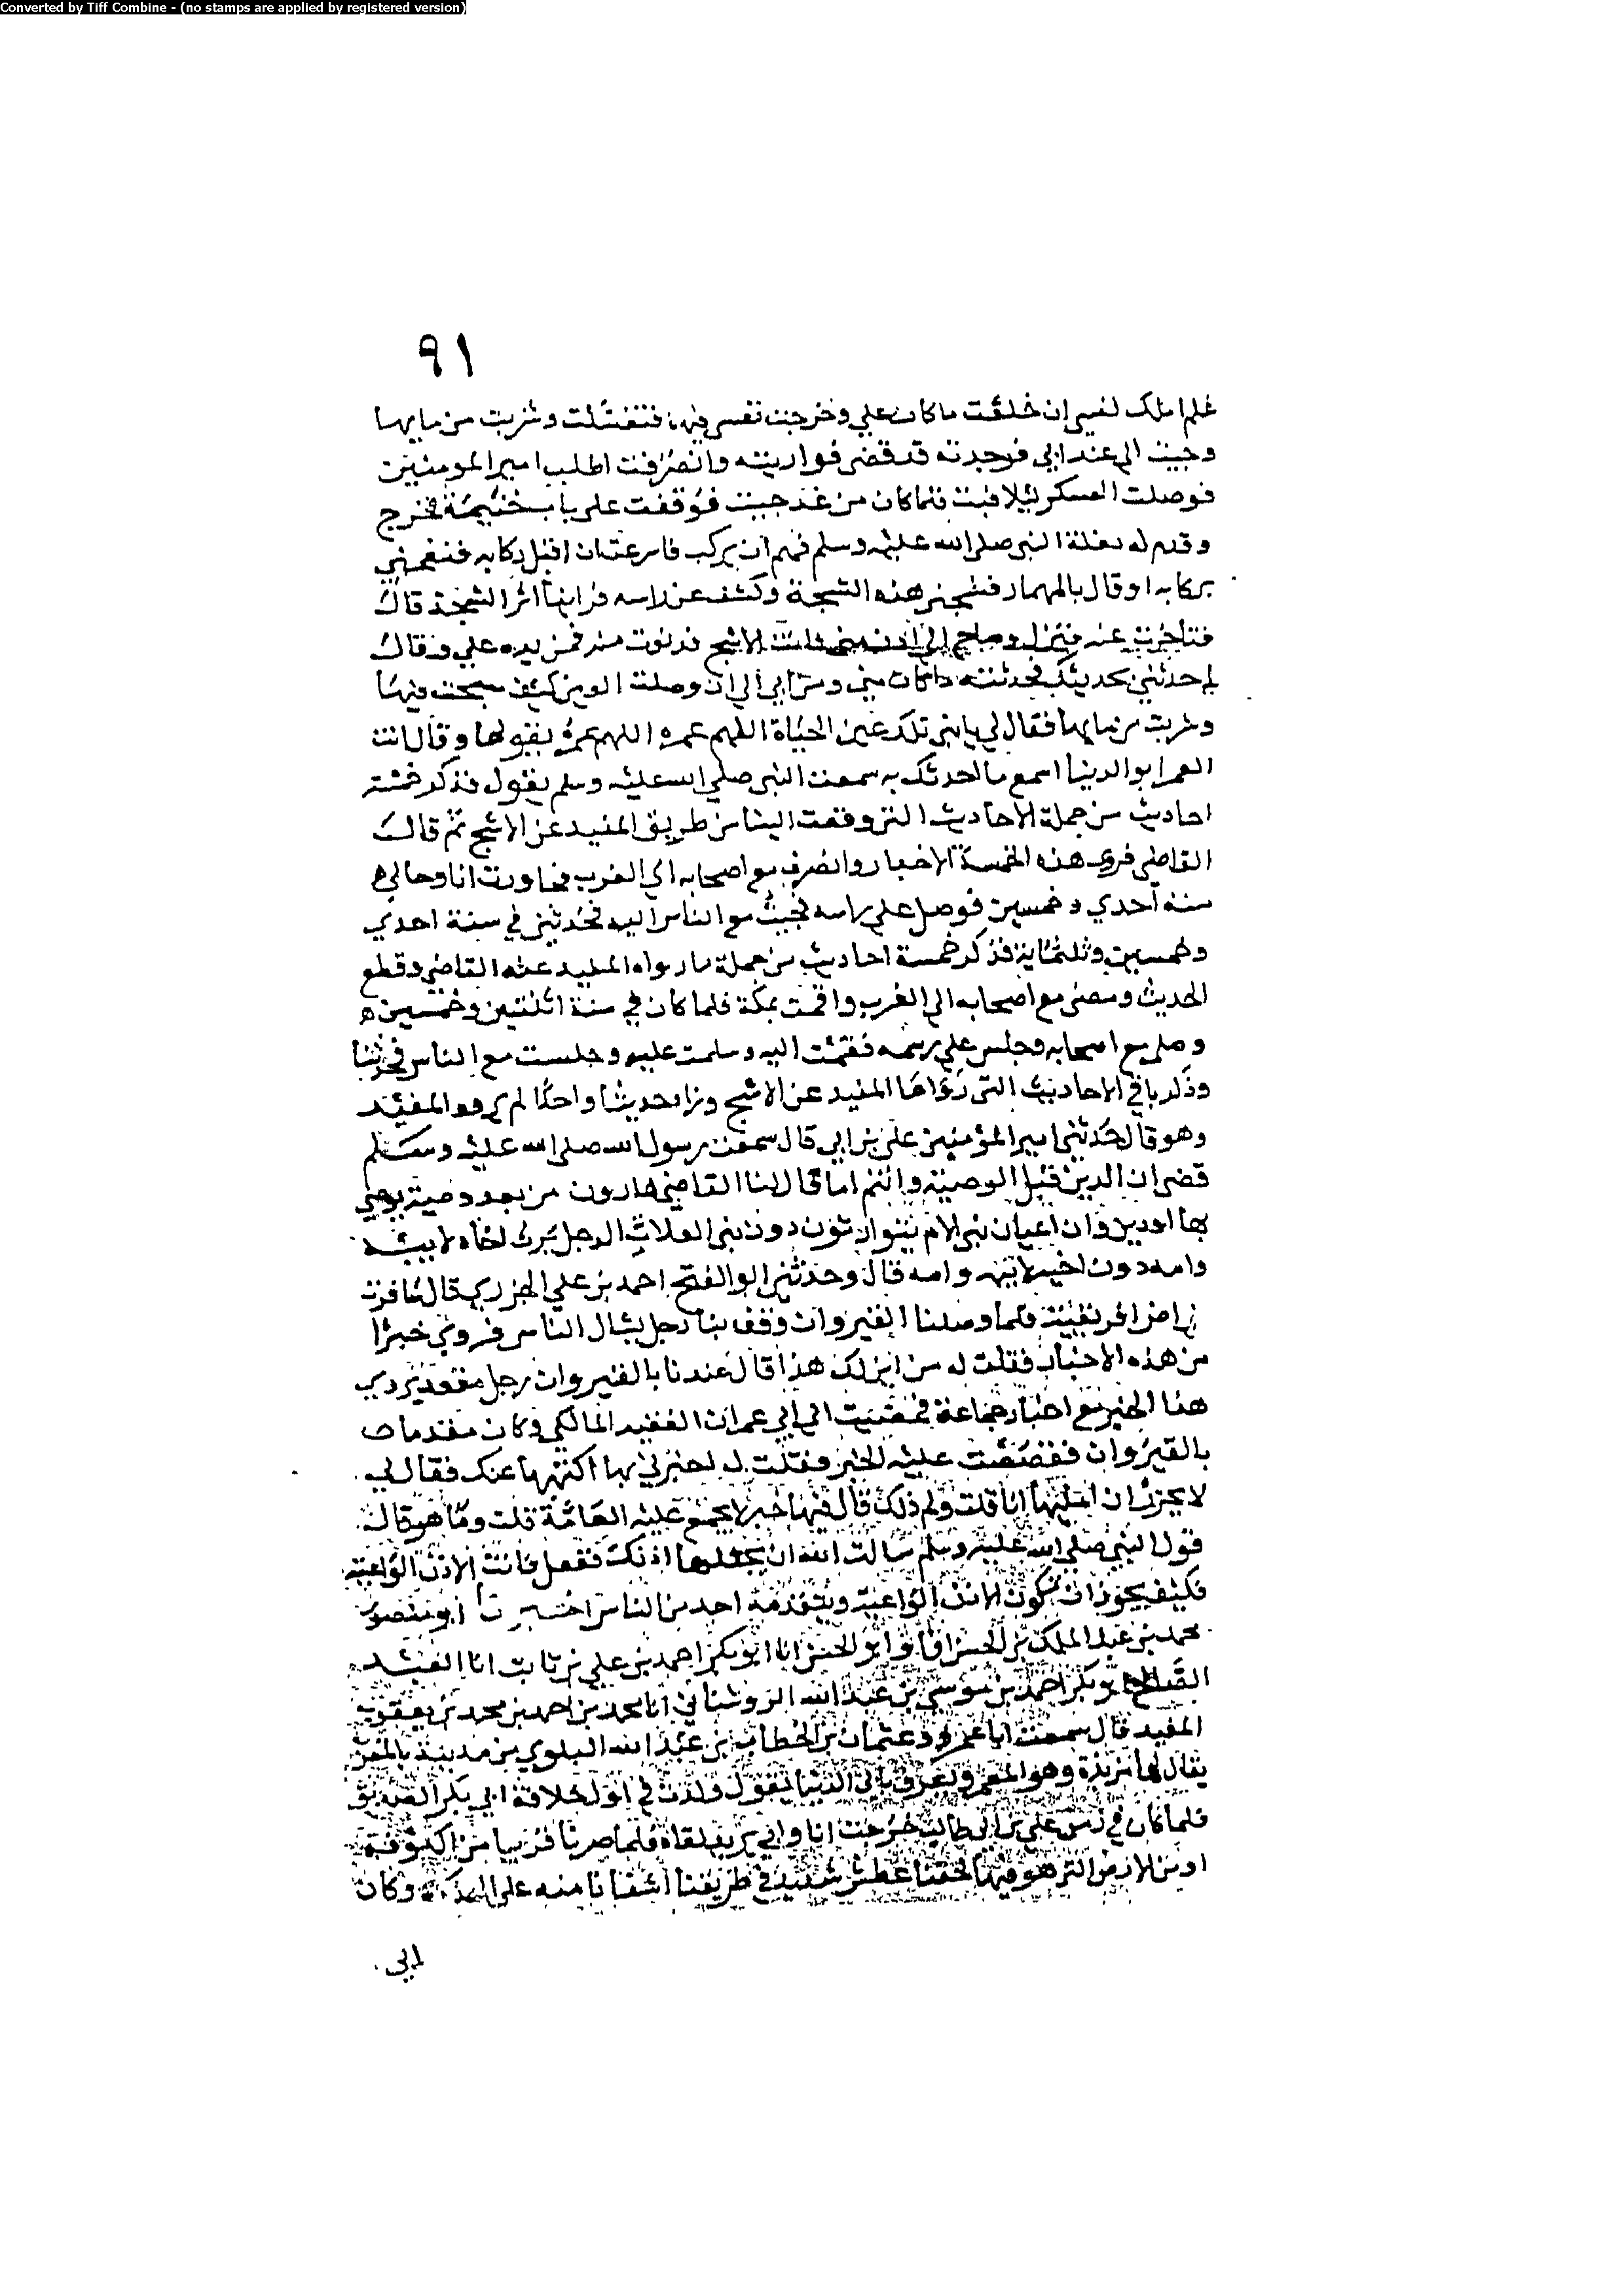 Converted by Tiff Combine - (no stamps are applied by registered version)
٩١
فلم املك نفسي ان خلعت ما كان علي وخرجت نفسي فيها فتغسلت وشربت من مايها
وجيت الى عند ابي فوجدته قد قضى فواريته وانصرفت اطلب امير المومنين
فوصلت العسكر ليلا فبت فلما كان من غد جيت فوقفت على باب خيمته فخرج
وقدم له بغلة النبي صلى الله عليه وسلم فهم ان يركب فاسرعت ان اقبل ركابه فنفحني
بركابه او قال بالمهماز فشجني هذه الشجة وكشف عن راسه فراينا اثر الشجة قال
فتاخرت عنه فنزل وصاح الي ادن مني فانت الاشج فدنوت منه فمر يده علي وقال
لي حدثني بحديثك فحدثته ما كان مني ومن ابي الى ان وصلت العين كيف سبحت فيها
وشربت من مايها فقال لي يا بني تلك عين الحياة اللهم عمره اللهم عمره يقولها وقال انت
المعمر ابو الدنيا اسمع ما احدثك به سمعت النبي صلى الله عليه وسلم يقول فذكر خمسة
احاديث من جملة الاحاديث التي وقعت الينا من طريق المفيد عن الاشج ثم قال
القاضي فروى هذه الخمسة الاخبار وانصرف مع اصحابه الى الغرب فجاورت انا وخالي
سنة احدي وخمسين فوصل على رسمه فجيت مع الناس اليه فحدثني في سنة احدي
وخمسين وثلثماية فذكر خمسة احاديث من جملة ما رواه المفيد عنه القاضي وقطع
الحديث ومضى مع اصحابه الى الغرب واقمت بمكة فلما كان في سنة اثنتين وخمسين
وصل مع اصحابه وجلس على رسمه فقمت اليه وسلمت عليه وجلست مع الناس فحدثنا
وذكر باقي الاحاديث التي رواها المفيد عن الاشج وزاد حديثا واحدا لم يروه المفيد
وهو قال حدثني امير المؤمنين علي بن ابي قال سمعت رسول الله صلى الله عليه وسلم
قضى ان الدين قبل الوصية وانتم اما قال لنا القاضي هارون من بعد وصية يوصي
بها او دين وان اعيان بني الام يتوارثون دون بني العلات الرجل يرث اخاه لابيه
وامه دون اخيه لابيه وامه قال وحدثني ابو الفتح احمد بن علي الجزري قال سافرت
الى ارض افريقية فلما وصلنا القيروان وقف بنا رجل يسال الناس فروى خبرا
من هذه الاخبار فقلت له من اين لك هذا قال عندنا بالقيروان رجل مقعد يروي
هذا الخبر مع اخبار جماعة فمضيت الى ابي عمران الفقيه المالكي وكان مقدما
بالقيروان فقصصت عليه الخبر وقلت له اخبرني بها اكتبها عنك فقال لي
لا يجوز ان امليها انا قلت ولم ذلك قال فيها خبر لا يجمع عليه العامة قلت وما هو قال
قول النبي صلى الله عليه وسلم سالت الله ان يجعلها اذنك ففعل فانت الاذن الواعية
فكيف يجوز ان تكون الاذن الواعية ويتقدمه احد من الناس اخبرنا ابو منصور
محمد بن عبد الملك بن الحسن انا ابو بكر احمد بن علي بن ثابت انا الفقيه
الصالح ابو بكر احمد بن موسى بن عبد الله الروشناني انا محمد بن احمد بن محمد بن يعقوب
المفيد قال سمعت ابا عمرو عثمان بن الخطاب بن عبد الله البلوي من مدينة بالمغرب
يقال لها مزيدة وهو المعمر ويعرف بابي الدنيا يقول ولدت في اول خلافة ابي بكر الصديق
فلما كان في زمن علي بن ابي طالب خرجت انا وابي نريد لقاه فلما صرنا قريبا من الكوفة
او من الارض التي هو فيها لحقنا عطش شديد في طريقنا اشفينا منه على الهلكة وكان
ابي